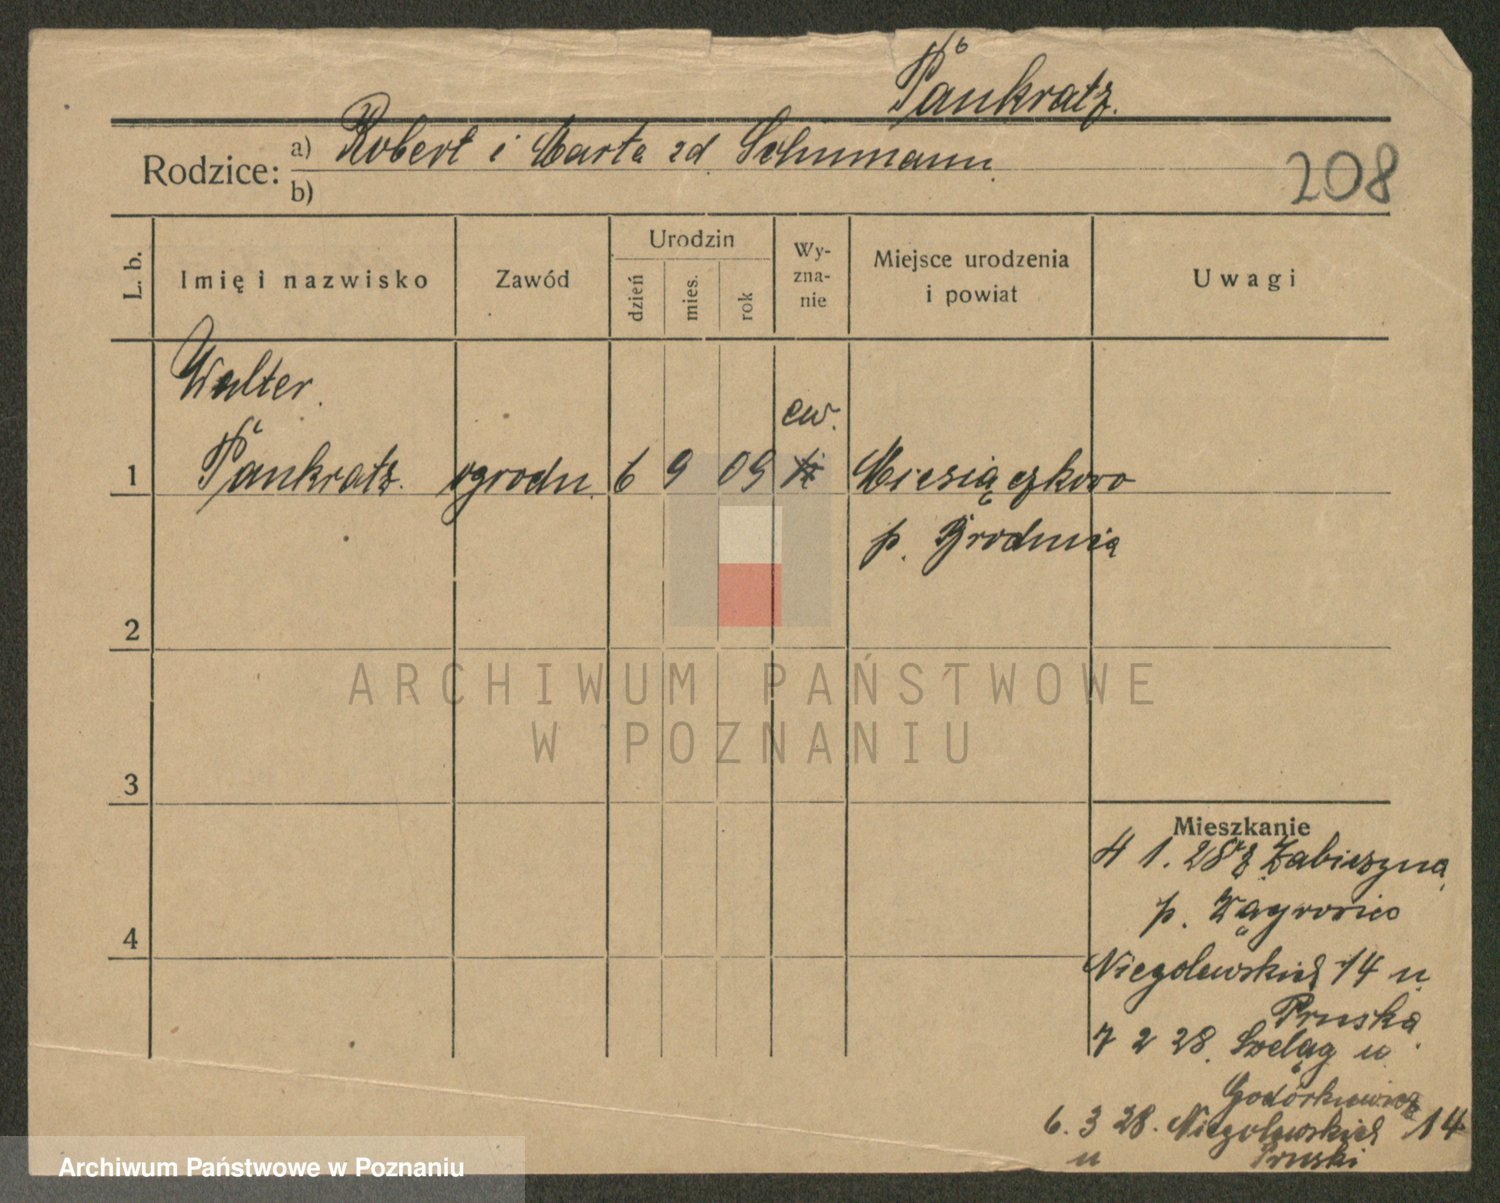 Pankratz.
Rodzice:
a) Robert i Marta zd Schumann.
b)
208
L. b.
Imię i nazwisko
Zawód
Urodzin
dzień
mies.
rok
Wy-
zna-
nie
Miejsce urodzenia
i powiat
Uwagi
Walter
1 Pankratz. ogrodn. 6 9 09 ew. Miesiączkowo
p. Brodnica
2
3
4
Mieszkanie
1. 28
p.
Niegolewskich 14 u
Pruska
7 2 28. Szeląg u
6. 3 28. Niegolewskich 14
u Pruski
ARCHIWUM PAŃSTWOWE
W POZNANIU
Archiwum Państwowe w Poznaniu